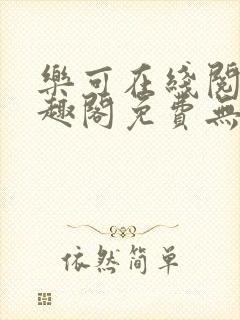 樂可在綫閱
趣閣免費無
依然简单